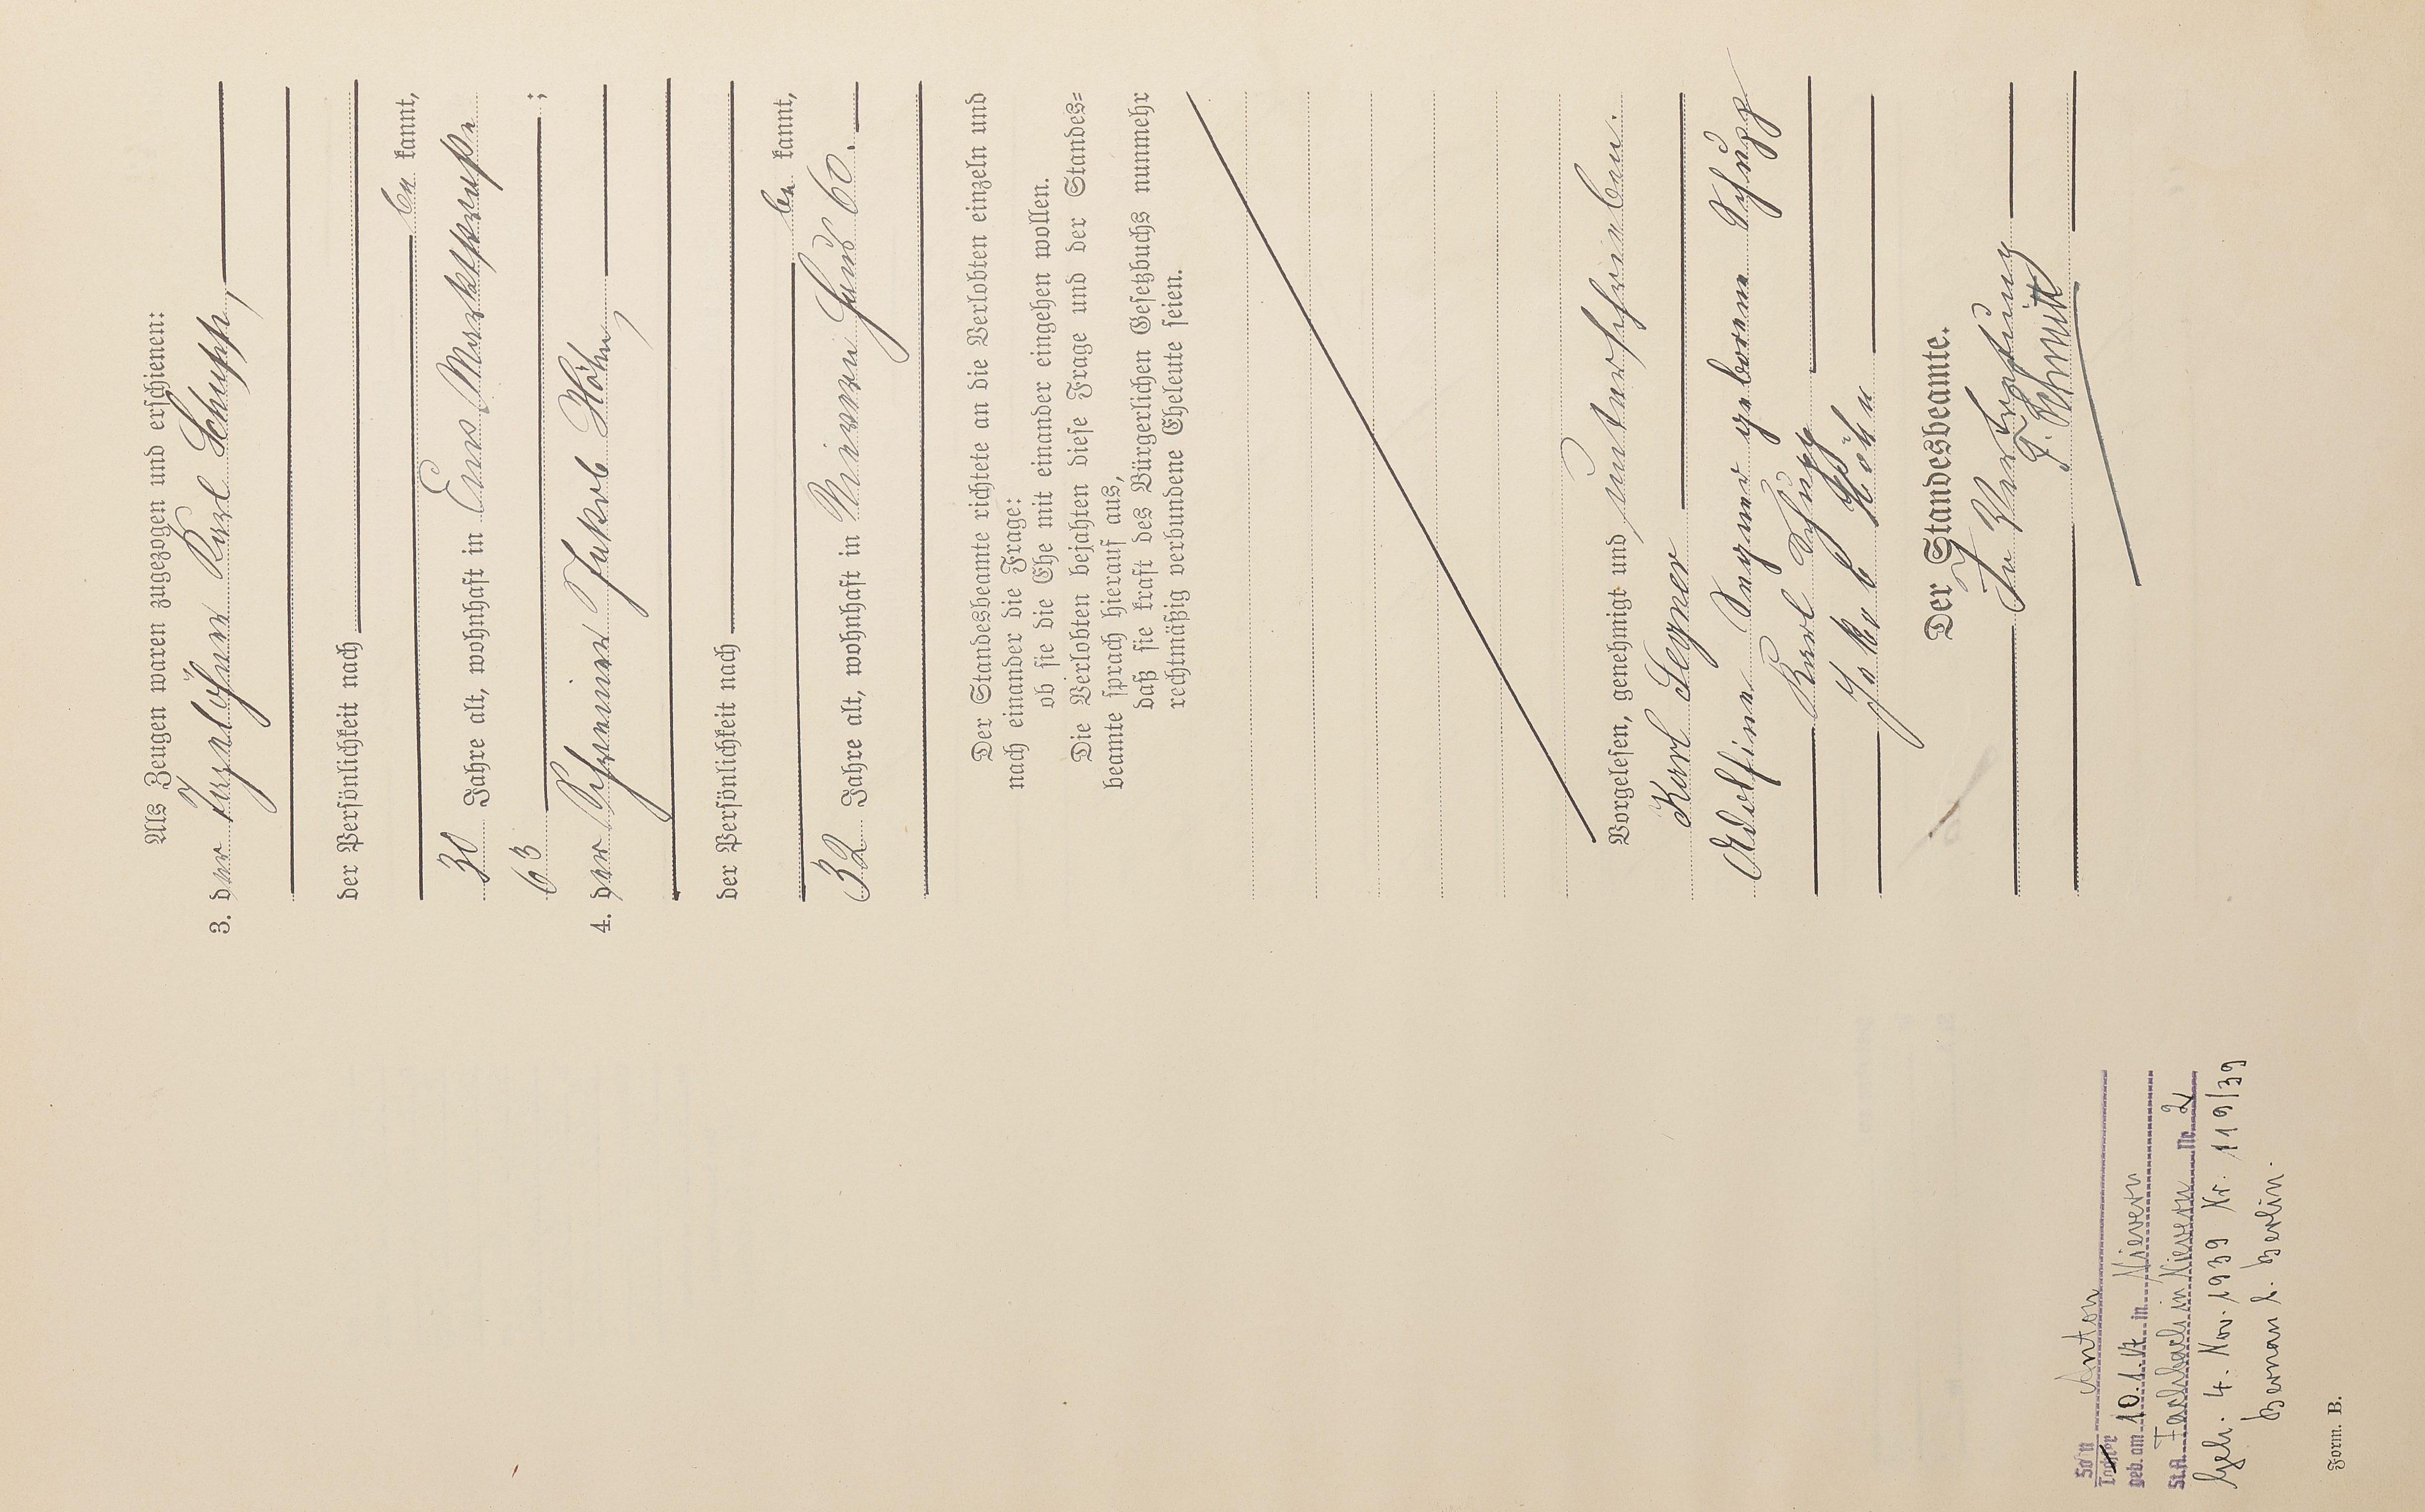 Als Zeugen waren zugezogen und erschienen:
3. der Taglöhner Karl Schupp,
der Persönlichkeit nach
be kannt,
30 Jahre alt, wohnhaft in Ems Marktstraße
63 ;
4. der Schreiner Jakob Höhn,
der Persönlichkeit nach
be kannt,
32 Jahre alt, wohnhaft in Nievern Haus 60.
Der Standesbeamte richtete an die Verlobten einzeln und
nach einander die Frage:
ob sie die Ehe mit einander eingehen wollen.
Die Verlobten bejahten diese Frage und der Standes=
beamte sprach hierauf aus,
daß sie kraft des Bürgerlichen Gesetzbuchs nunmehr
rechtmäßig verbundene Eheleute seien.
Vorgelesen, genehmigt und unterschrieben.
Karl Segner
Adolfine Segner geborene Schupp
Karl Schupp
Jakob Höhn
Der Standesbeamte.
In Vertretung
F. Schmitt
Sohn Anton
Tochter
geb. am 10.1.17. in Nievern
St.A. Fachbach in Nievern Nr. 2
Geh. 4. Nov. 1939 Nr. 119/39
Bernau b. Berlin.
Form. B.